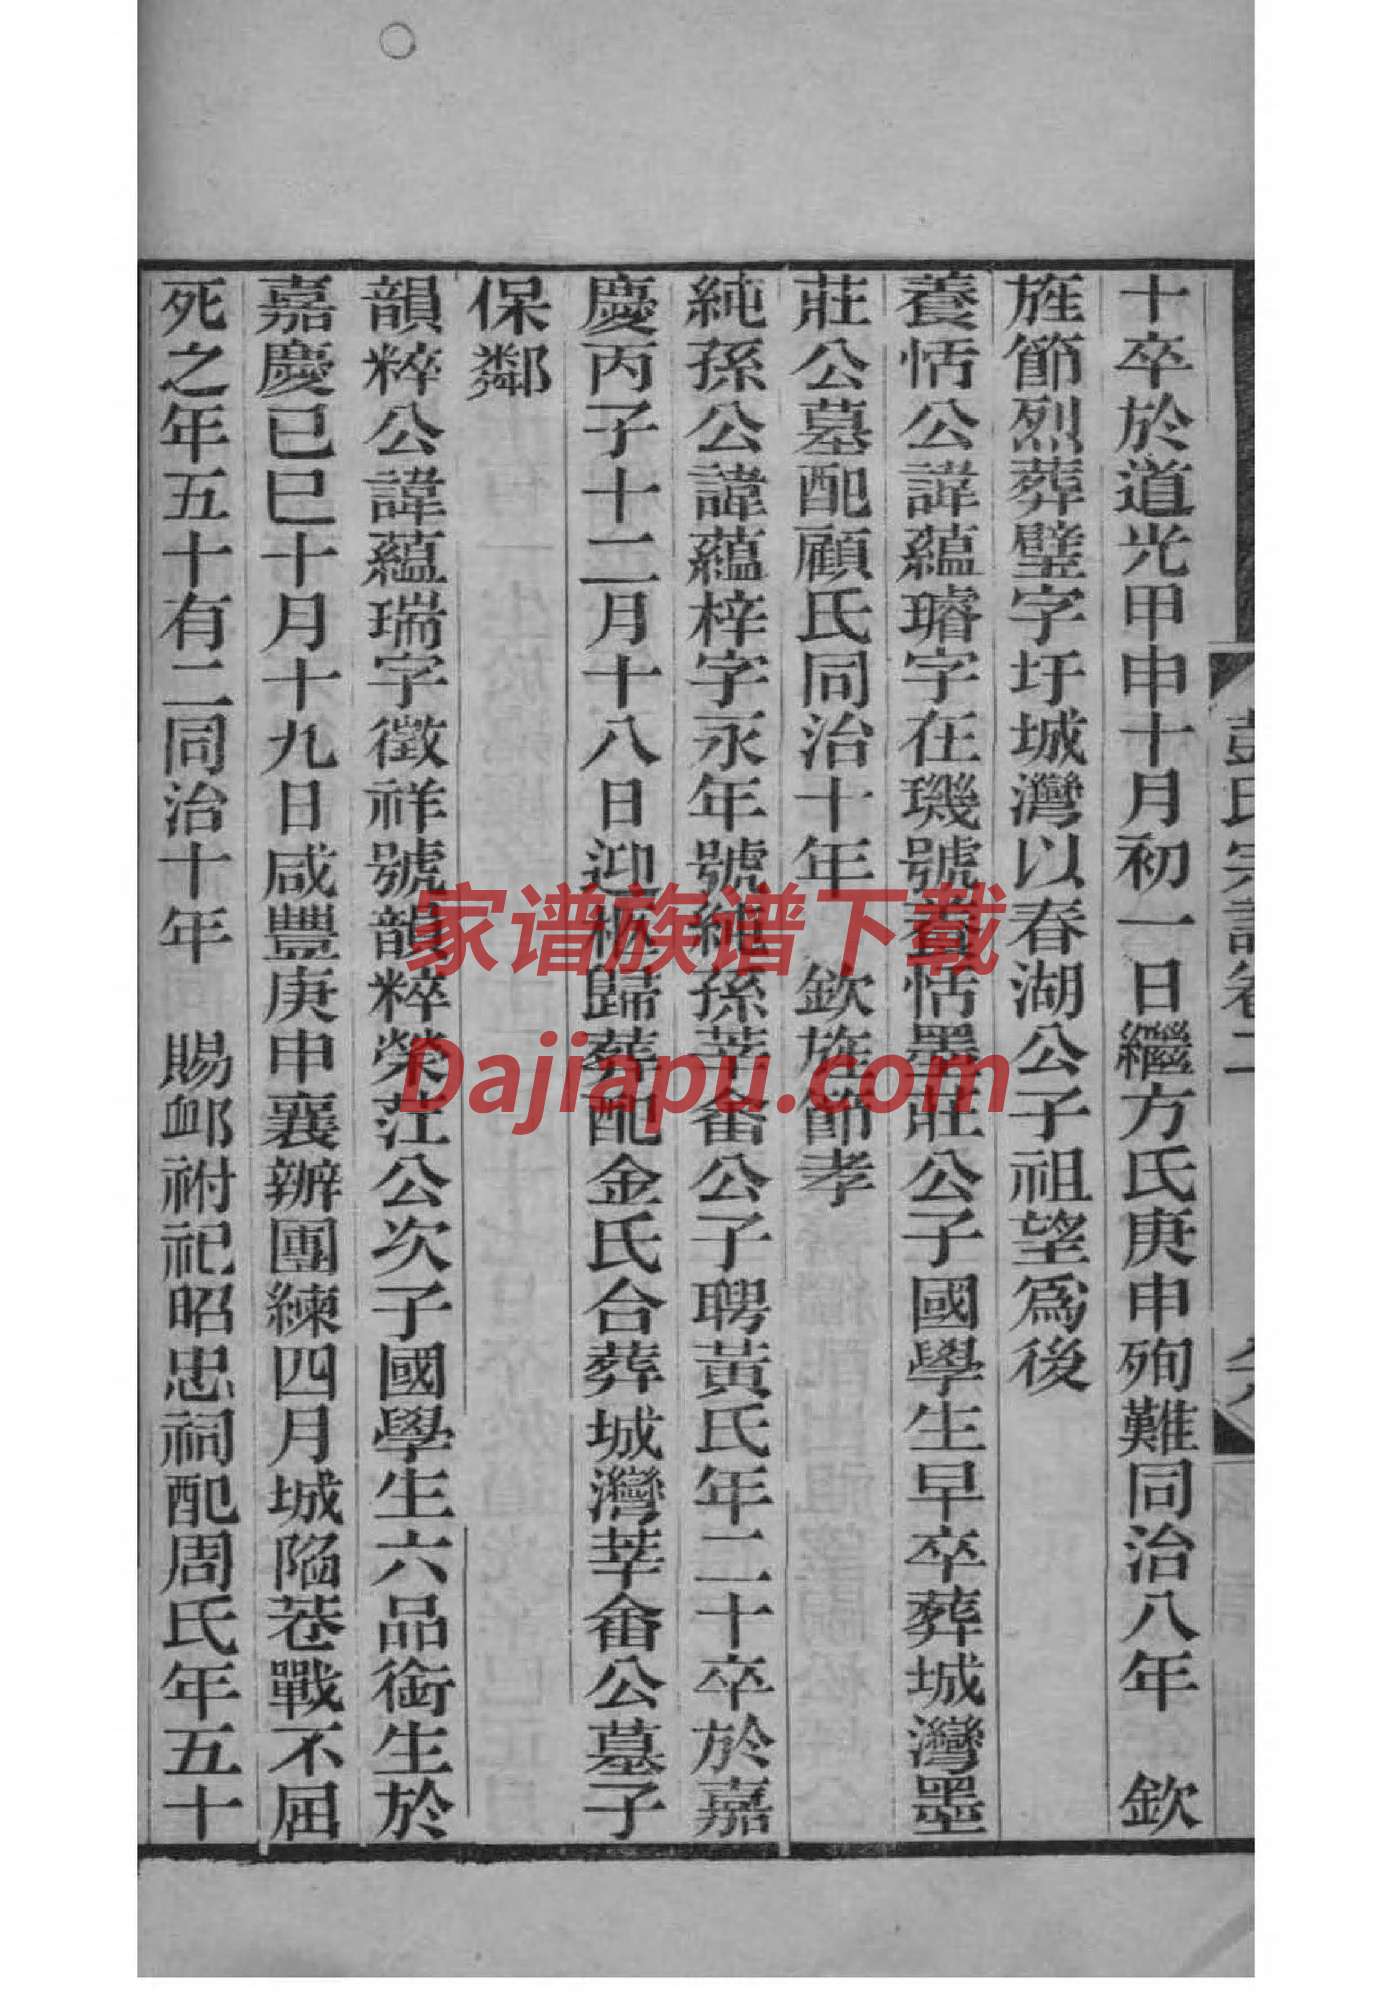 彭氏宗譜卷二
十卒於道光甲申十月初一日繼方氏庚申殉難同治八年　欽
旌節烈葬璧字圩城灣以春湖公子祖望爲後
養恬公諱蘊璿字在璣號養恬墨莊公子國學生早卒葬城灣墨
莊公墓配顧氏同治十年　欽旌節孝
純孫公諱蘊梓字永年號純孫莘畬公子聘黃氏年二十卒於嘉
慶丙子十二月十八日迎柩歸葬配金氏合葬城灣莘畬公墓子
保鄰
韻粹公諱蘊瑞字徵祥號韻粹榮茳公次子國學生六品銜生於
嘉慶已巳十月十九日咸豐庚申襄辦團練四月城陷巷戰不屈
死之年五十有二同治十年　賜卹祔祀昭忠祠配周氏年五十
家谱族谱下载
Dajiapu.com